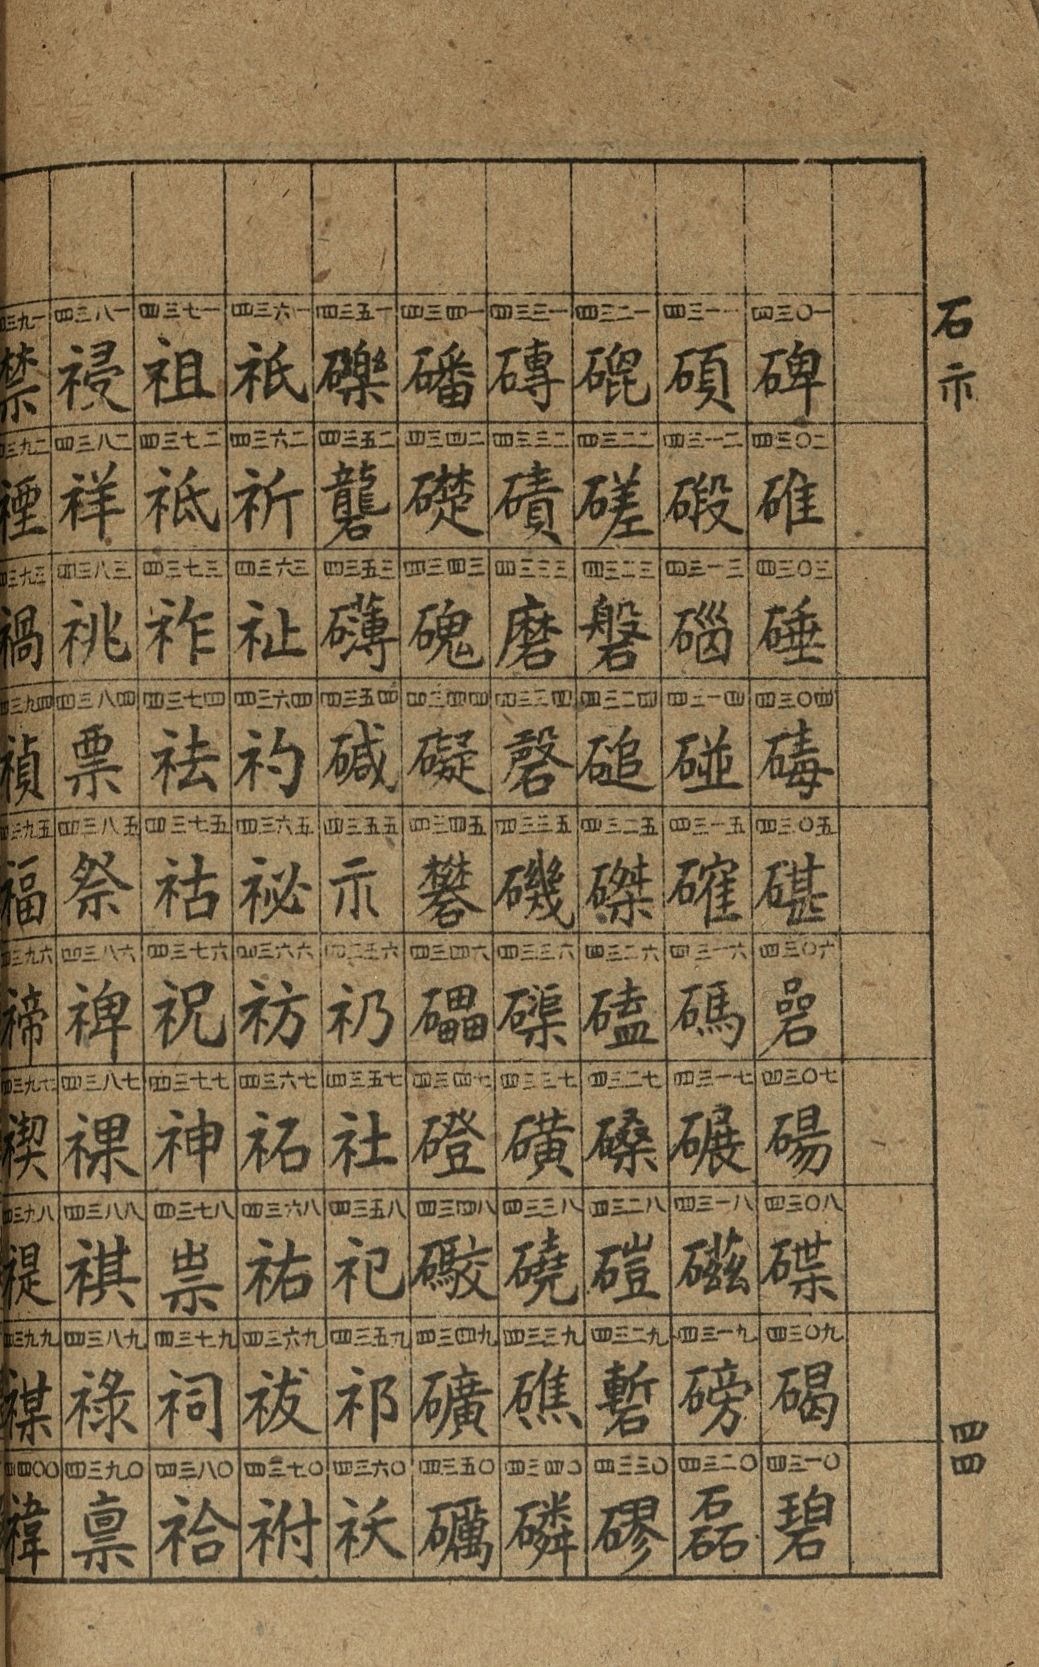 石示
四四
四三〇一 碑 四三〇二 碓 四三〇三 硾 四三〇四 碡 四三〇五 碪 四三〇六 碞 四三〇七 碭 四三〇八 碟 四三〇九 碣 四三一〇 碧
四三一一 碩 四三一二 碫 四三一三 碯 四三一四 碰 四三一五 確 四三一六 碼 四三一七 碾 四三一八 磁 四三一九 磅 四三二〇 磊
四三二一 磇 四三二二 磋 四三二三 磐 四三二四 磓 四三二五 磔 四三二六 磕 四三二七 磉 四三二八 磑 四三二九 磛 四三三〇 磟
四三三一 磚 四三三二 磧 四三三三 磨 四三三四 磬 四三三五 磯 四三三六 磲 四三三七 磺 四三三八 磽 四三三九 礁 四三四〇 磷
四三四一 磻 四三四二 礎 四三四三 磈 四三四四 礙 四三四五 礬 四三四六 礧 四三四七 磴 四三四八 礮 四三四九 礦 四三五〇 礪
四三五一 礫 四三五二 礱 四三五三 礴 四三五四 碱 四三五五 示 四三五六 礽 四三五七 社 四三五八 祀 四三五九 祁 四三六〇 祆
四三六一 祇 四三六二 祈 四三六三 祉 四三六四 礿 四三六五 祕 四三六六 祊 四三六七 祏 四三六八 祐 四三六九 祓 四三七〇 祔
四三七一 祖 四三七二 祗 四三七三 祚 四三七四 祛 四三七五 祜 四三七六 祝 四三七七 神 四三七八 祟 四三七九 祠 四三八〇 祫
四三八一 祲 四三八二 祥 四三八三 祧 四三八四 票 四三八五 祭 四三八六 禆 四三八七 祼 四三八八 祺 四三八九 祿 四三九〇 禀
四三九一 禁 四三九二 禋 四三九三 禍 四三九四 禎 四三九五 福 四三九六 禘 四三九七 禊 四三九八 禔 四三九九 禖 四四〇〇 禕